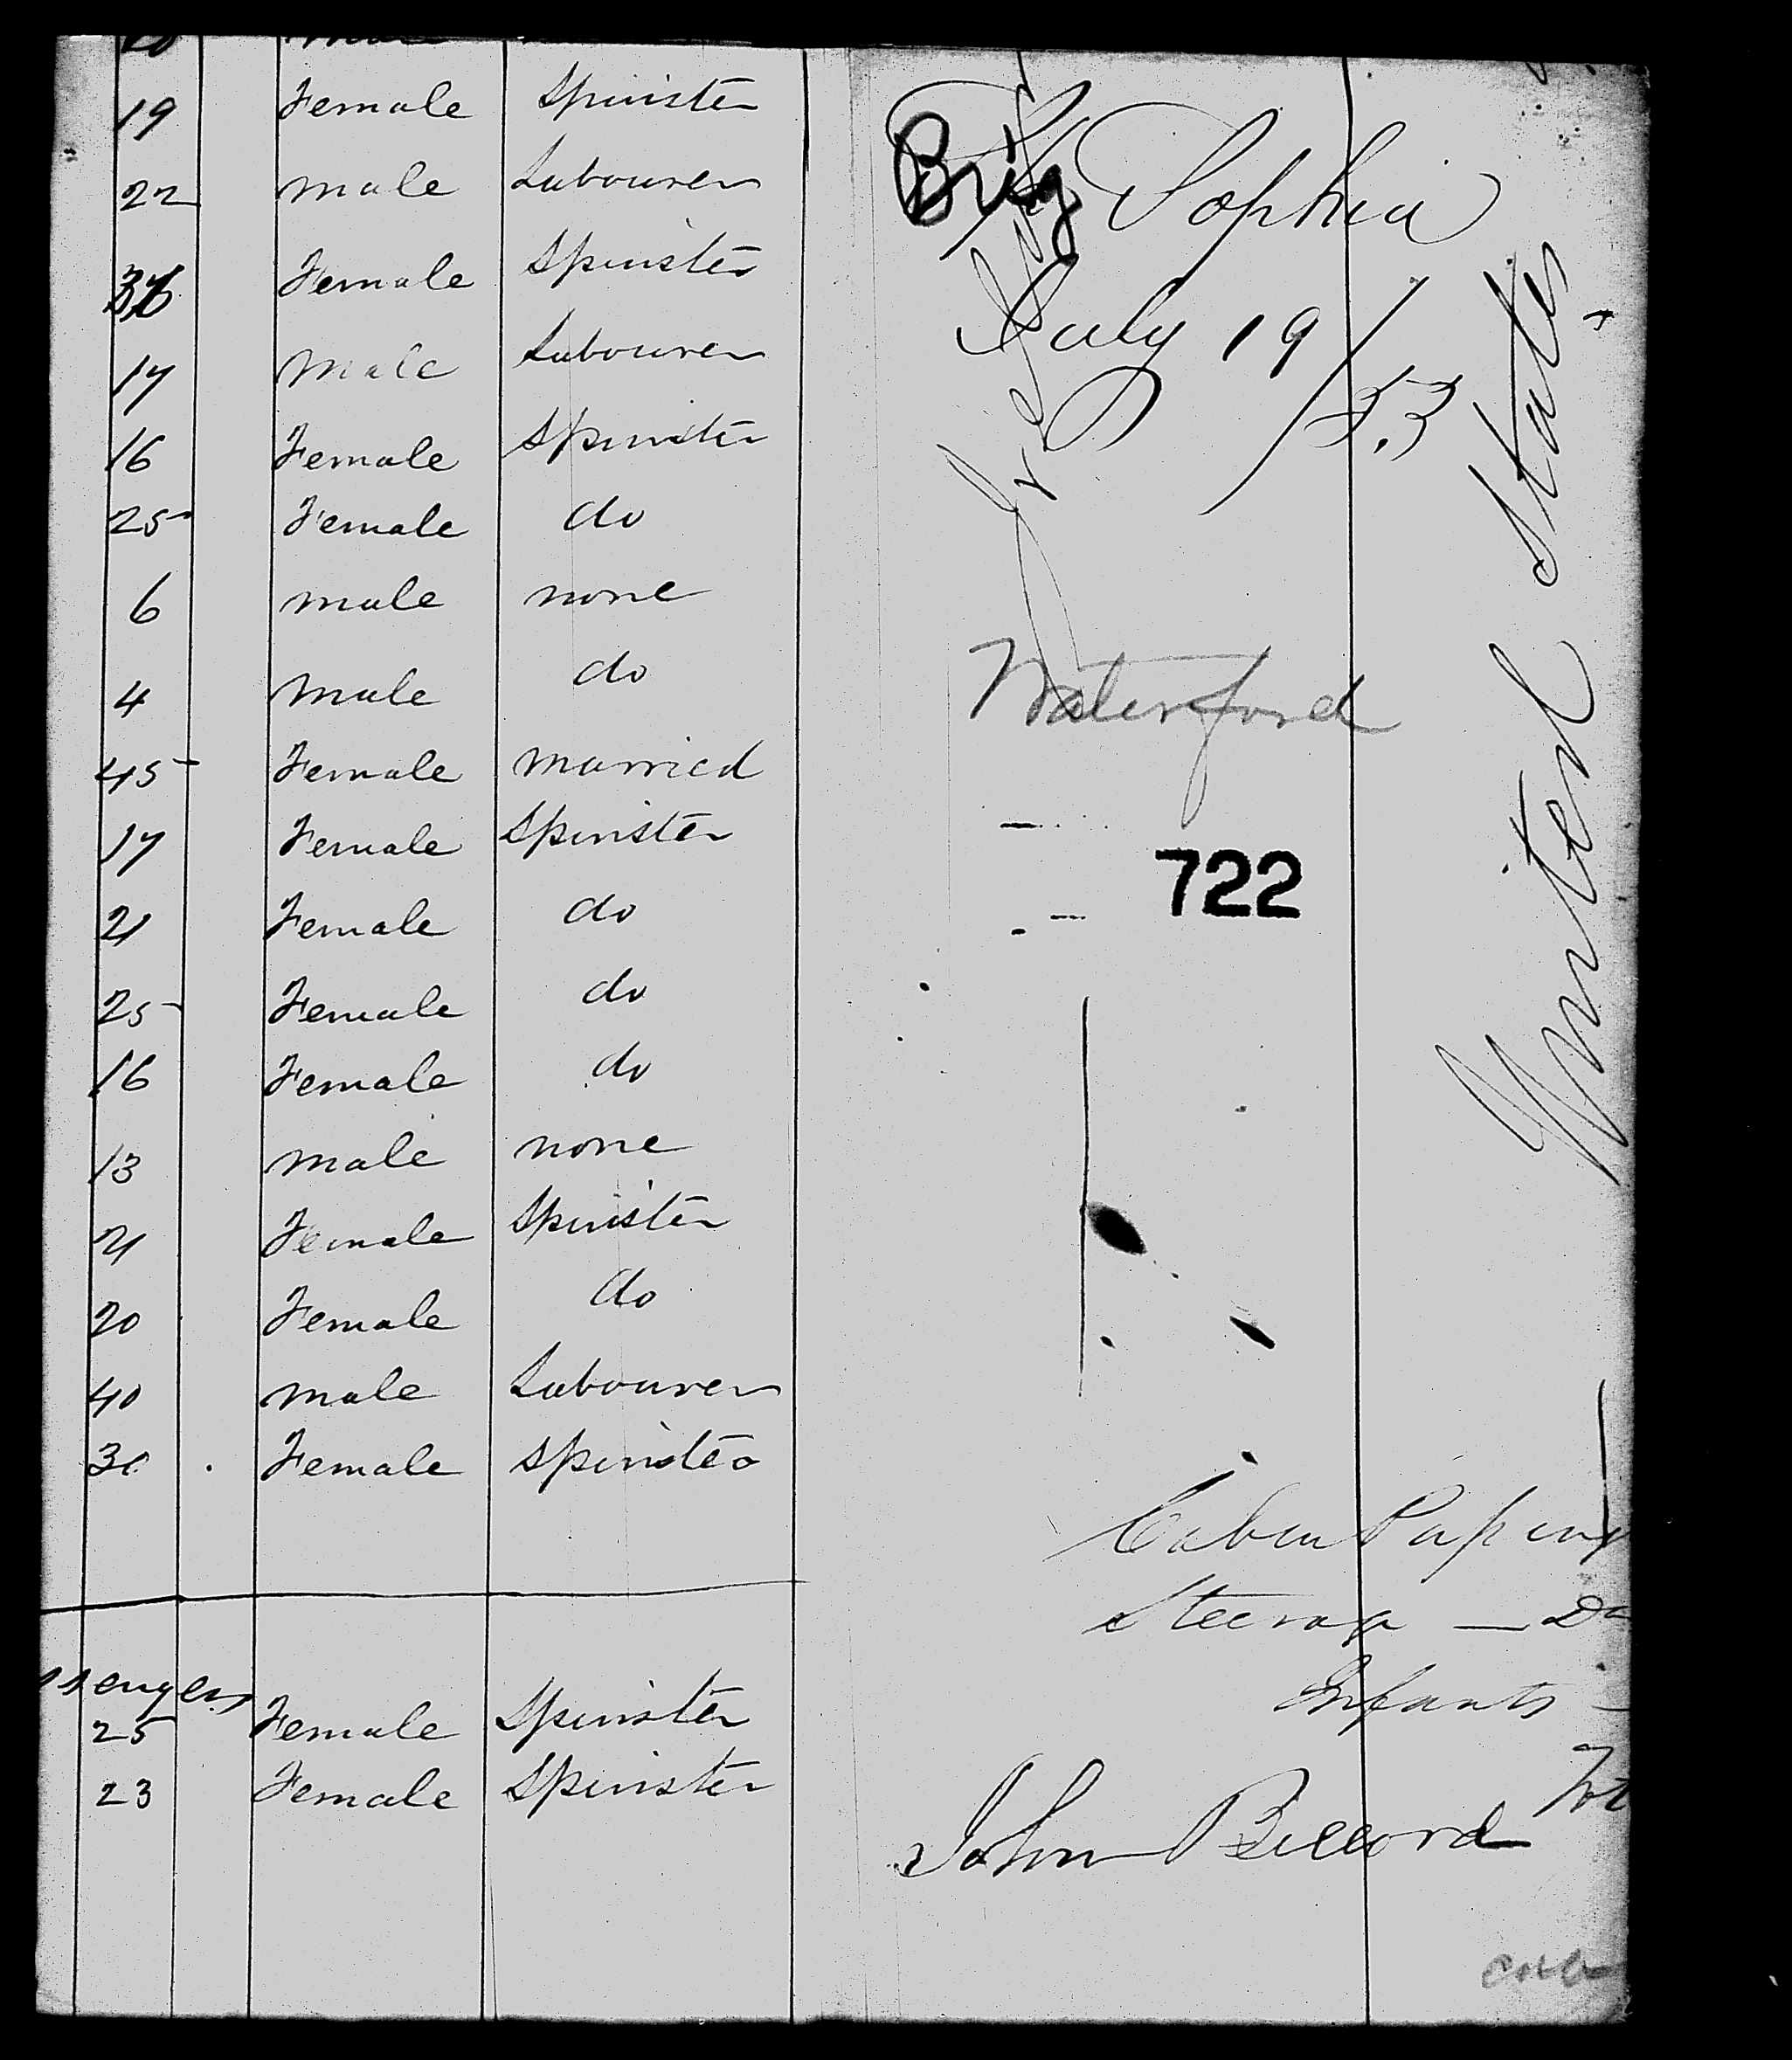 19 Female Spinster
22 male Labourer
Female Spinster
17 Male Labourer
16 Female Spinster
25 Female do
6 male none
4 male do
45 Female married
17 Female Spinster
21 Female do
25 Female do
16 Female do
13 male none
21 Female Spinster
20 Female do
40 male Labourer
30 Female Spinster
ssengers
25 Female Spinster
23 Female Spinster
Brig Sophia
July 19/53
Ireland
Waterford
722
United States
Cabin Passeng
Steerage — Do
Infants -
Tot
John Bellord